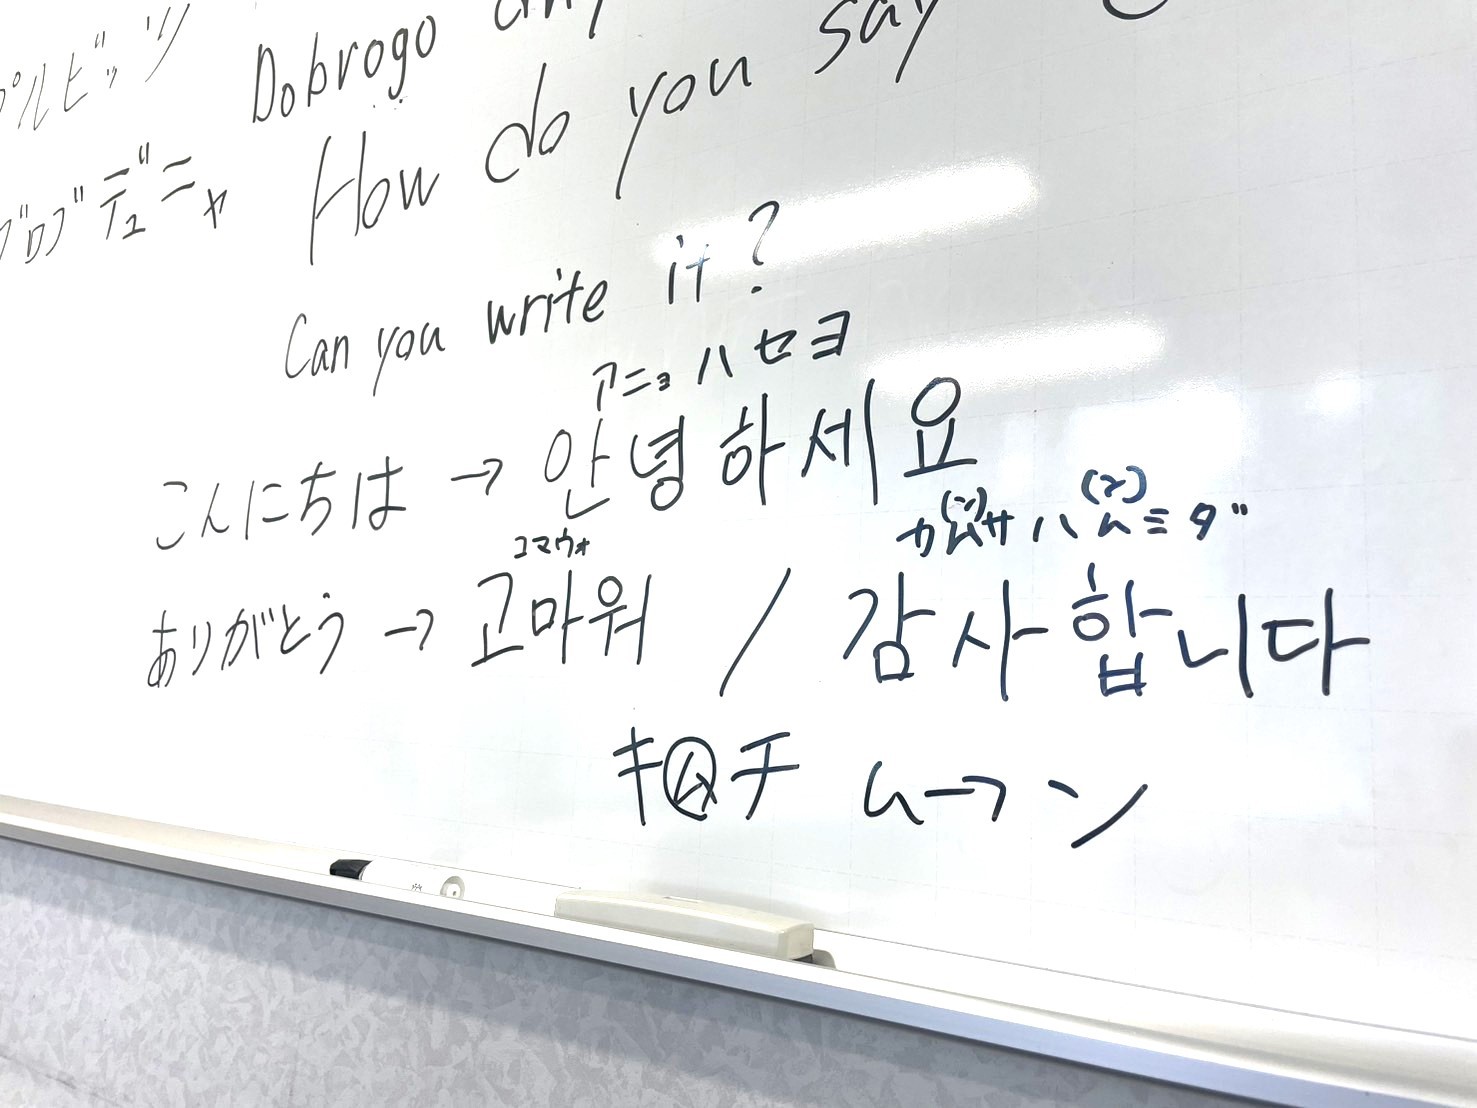 Dobrogo
How do you say
デュニャ
Can you write it?
アニョハセヨ
こんにちは → 안녕하세요
コマウォ
(ン) (ン)
カムサハムミダ
ありがとう → 고마워 / 감사합니다
キムチ ム→ン